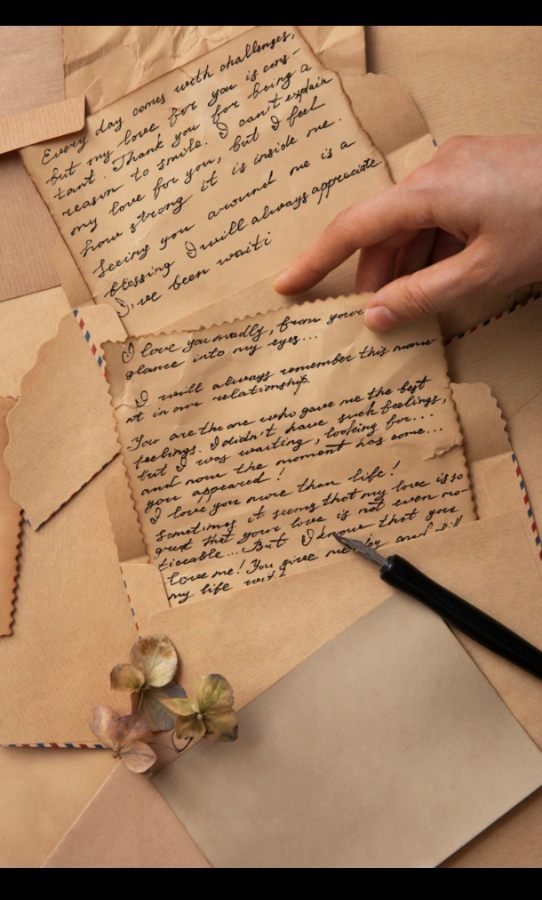 Every day comes with challenges,
but my love for you is cons-
tant. Thank you for being a
reason to smile. I can't explain
my love for you, but I feel
how strong it is inside me.
Seeing you around me is a
blessing. I will always appreciate.
I've been waiti
I love you madly, from your
glance into my eyes...
I will always remember this mom
nt in our relationship.
You are the one who gave me the best
feelings. I didn't have such feelings,
but I was waiting, looking for...
and now the moment has come...
you appeared!
I love you more than life!
Sometimes it seems that my love is so
great that your love is not even no-
ticeable... But I know that you
love me! You give me joy and fill
my life with